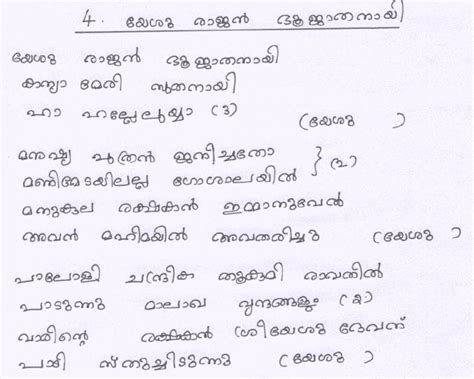 4. യേശു രാജൻ ഭൂജാതനായി
യേശു രാജൻ ഭൂജാതനായി
കന്യാ മേരി സുതനായി
ഹാ ഹല്ലേലൂയ്യാ (3)
(യേശു )
മനുഷ്യ പുത്രൻ ജനിച്ചതോ
മണിമേടയിലല്ല ഗോശാലയിൽ } (2)
മനുകുല രക്ഷകൻ ഇമ്മാനുവേൽ
അവൻ മഹിമയിൽ അവതരിച്ചു (യേശു )
പാലോളി ചന്ദ്രിക തൂകുമീ രാവതിൽ
പാടുന്നു മാലാഖ വൃന്ദങ്ങളും (2)
രക്ഷകൻ ശ്രീയേശു ദേവന്
പാടി സ്തുതിച്ചിടുന്നു (യേശു )